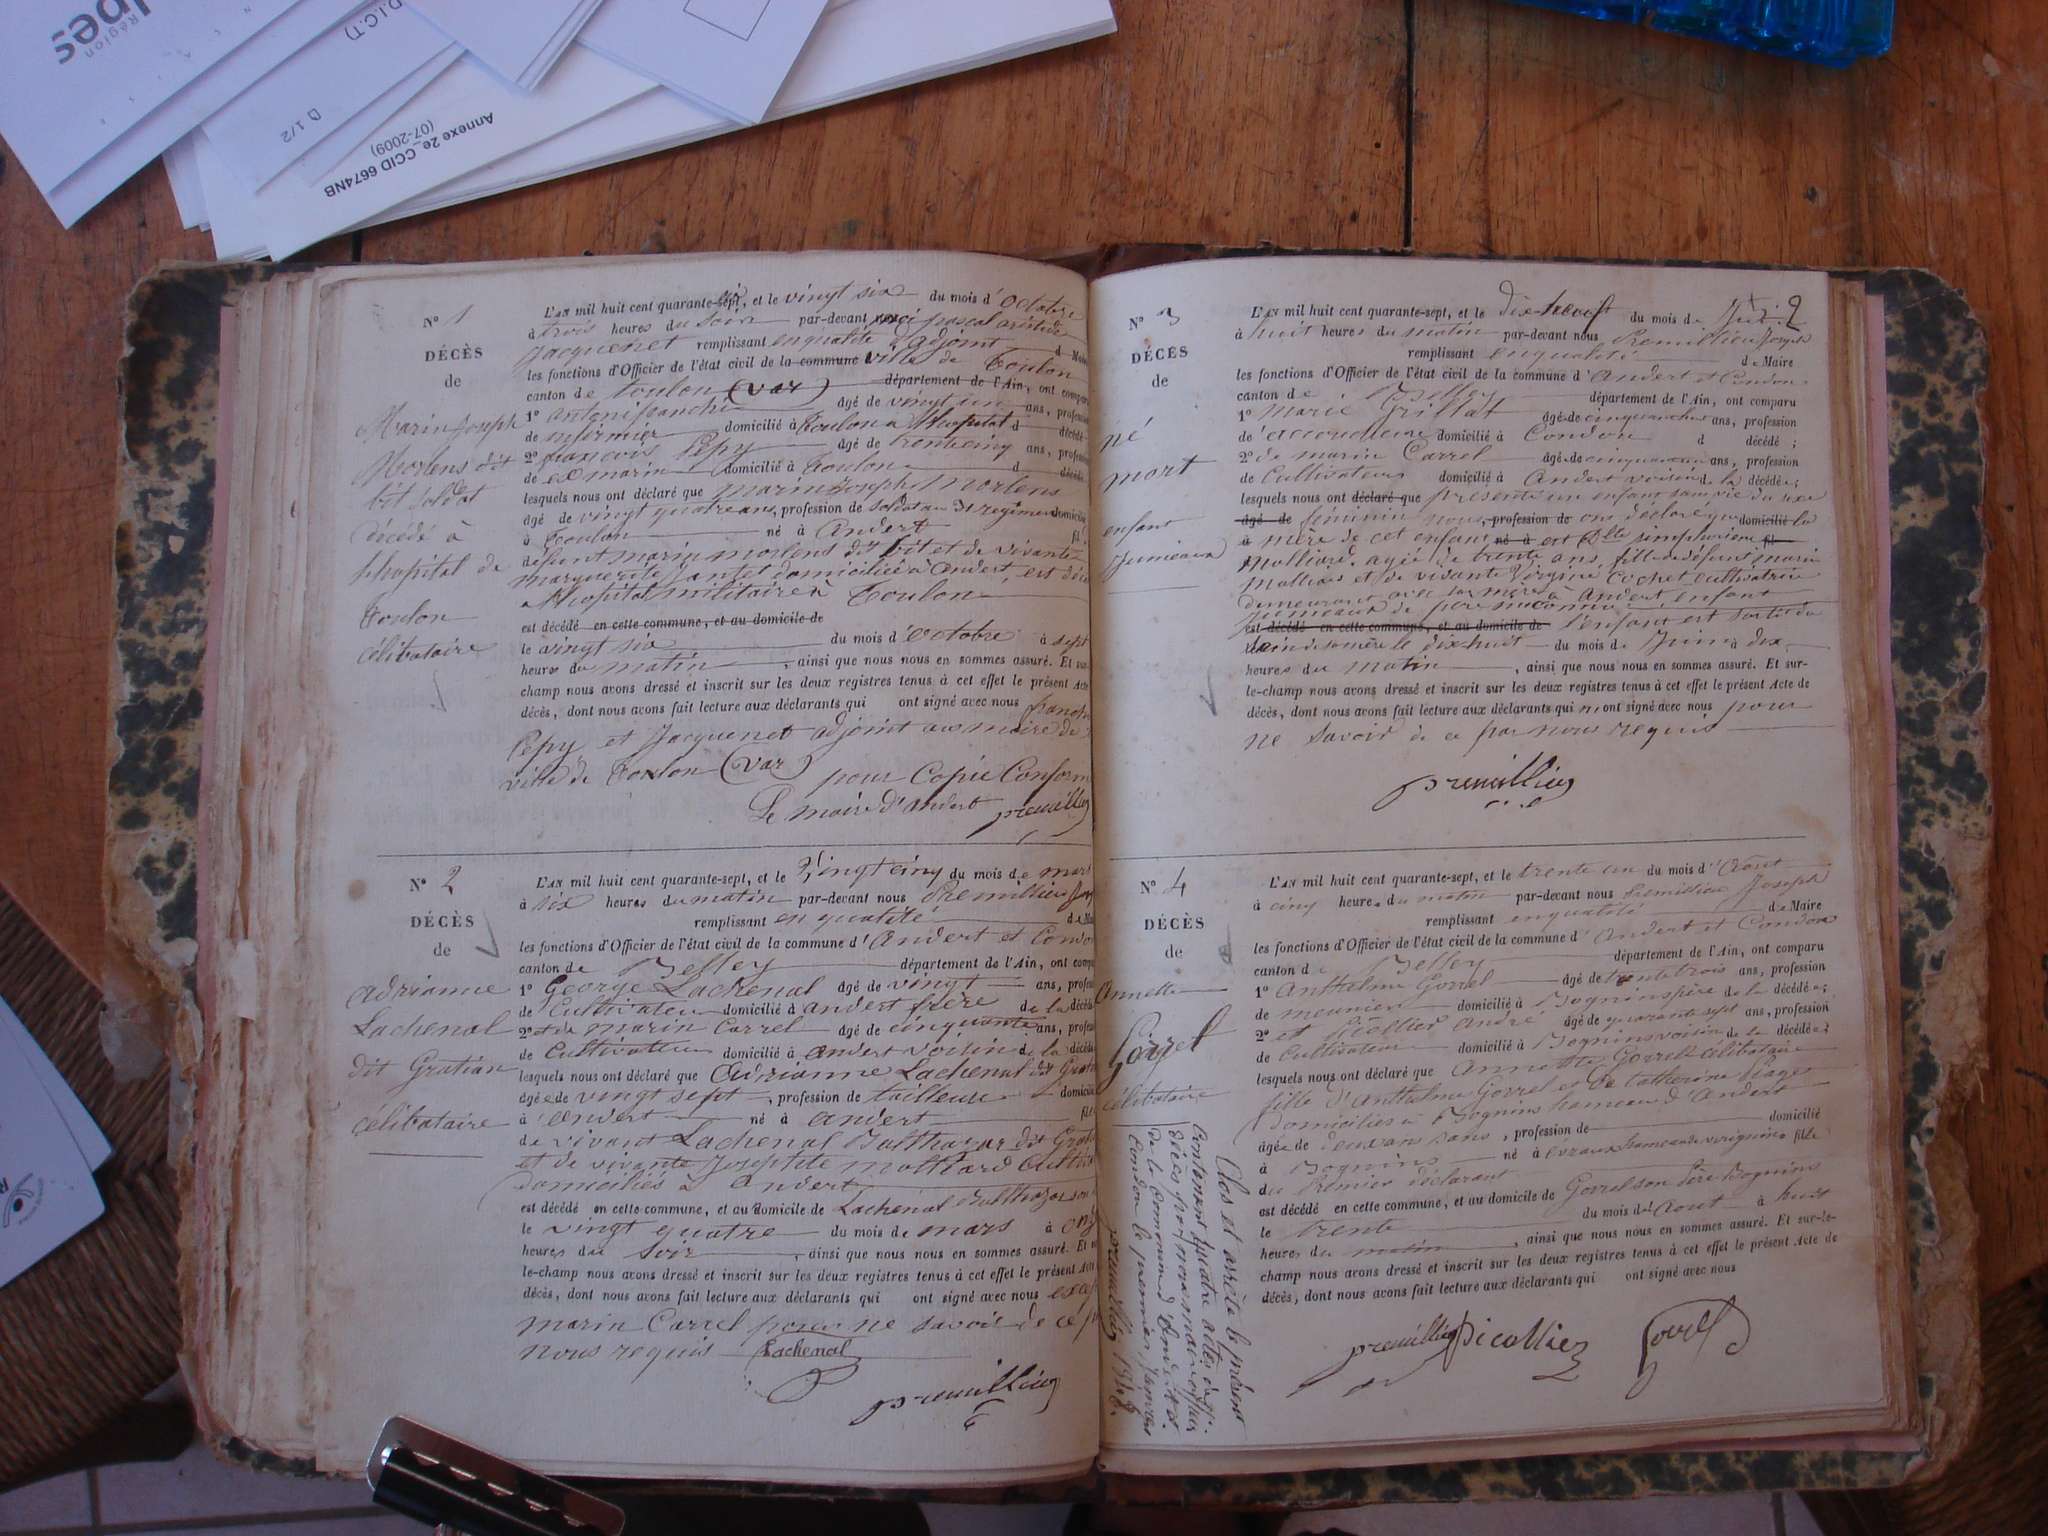 Région
D.I.C.T)
D 1/2
Annexe 2e_CCID 6674NB
(07-2009)
N° 1
DÉCÈS
de
Marin Joseph
Morlens dit
bit soldat
décédé à
l'hopital de
Toulon
célibataire
L'AN mil huit cent quarante-six, et le vingt six du mois d'Octobre
à trois heures du soir par-devant pascal aristide
Jacquenet remplissant en qualité d'adjoint
les fonctions d'Officier de l'état civil de la commune ville de Toulon
canton de Toulon (Var) département de l'Ain, ont comparu
1° antoni franchi âgé de vingt un ans, profession
de infirmier domicilié à Toulon a l'hopital d décédé
2° françois Pépy âgé de trente cinq ans, profession
de ex marin domicilié à Toulon d décédé
lesquels nous ont déclaré que marin Joseph Morlens
âgé de vingt quatre ans, profession de soldat au régiment domicilié
à Toulon né à Andert fil
défunt marin morlens dit bit et de vivante
marguerite Jantet domiciliée à Andert, est décé
a l'hopital militaire à Toulon
est décédé en cette commune, et au domicile de
le vingt six du mois d'Octobre à sept
heures du matin, ainsi que nous nous en sommes assuré. Et sur
champ nous avons dressé et inscrit sur les deux registres tenus à cet effet le présent Acte
décès, dont nous avons fait lecture aux déclarants qui ont signé avec nous franchi
Pépy et Jacquenet adjoint au maire de
ville de Toulon (Var) pour Copie Conform
Le maire d'Andert premillieu
N° 2
DÉCÈS
de
adrianne
Lachenal
dit Gratian
célibataire
L'AN mil huit cent quarante-sept, et le Vingt cinq du mois de mars
à six heures du matin par-devant nous Premillieu
remplissant en qualité de Maire
les fonctions d'Officier de l'état civil de la commune d'Andert et Condon
canton de Belley département de l'Ain, ont comparu
1° George Lachenal âgé de vingt ans, profession
de Cultivateur domicilié à andert frère de la décédé
2° et de marin Carrel âgé de cinquante ans, profession
de Cultivateur domicilié à andert voisin de la décédé
lesquels nous ont déclaré que Adrianne Lachenal dit
âgée de vingt sept, profession de tailleuse domicilié
à andert né à andert fil
de vivant Lachenal Balthazar dit
et de vivante Josephte molliard
domiciliés à Andert
est décédé en cette commune, et au domicile de Lachenal Balthazar son
le vingt quatre du mois de mars à onz
heures du soir, ainsi que nous nous en sommes assuré. Et
le-champ nous avons dressé et inscrit sur les deux registres tenus à cet effet le présent Acte
décès, dont nous avons fait lecture aux déclarants qui ont signé avec nous
marin Carrel pour ne savoir de ce
nous requis Lachenal
premillieu
2
N° 3
DÉCÈS
de
né
mort
enfant
Jumeaux
L'AN mil huit cent quarante-sept, et le dix-neuf du mois de Juin
à huit heures du matin par-devant nous Premillieu Joseph
remplissant en qualité de Maire
les fonctions d'Officier de l'état civil de la commune d'Andert et Condon
canton de Belley département de l'Ain, ont comparu
1° marie Grillat âgé de ans, profession
de l'accoucheuse domicilié à Condon d décédé ;
2° de marin Carrel âgé de cinquante ans, profession
de Cultivateur domicilié à Andert voisin de la décédée ;
lesquels nous ont déclaré que présenté un enfant sans vie du sexe
âgé de féminin nous, profession de ont déclaré que domicilié la
à mère de cet enfant né à est simphorienne fil
molliard, agée de trente ans, fille de défunt marin
molliard et de vivante Virginie Cochet cultivatrice
demeurant avec sa mère à Andert, enfant
jumeaux de père inconnu
est décédé en cette commune, et au domicile de l'enfant est sortie du
sein de sa mère le dix-huit du mois de Juin à dix
heures du matin, ainsi que nous nous en sommes assuré. Et sur-
le-champ nous avons dressé et inscrit sur les deux registres tenus à cet effet le présent Acte de
décès, dont nous avons fait lecture aux déclarants qui n'ont signé avec nous pour
ne savoir de ce par nous requis
premillieu
N° 4
DÉCÈS
de
Annette
Gorrel
célibataire
L'AN mil huit cent quarante-sept, et le trente un du mois d'Août
à cinq heures du matin par-devant nous Premillieu Joseph
remplissant en qualité de Maire
les fonctions d'Officier de l'état civil de la commune d'Andert et Condon
canton de Belley département de l'Ain, ont comparu
1° Anthelme Gorrel âgé de trente trois ans, profession
de meunier domicilié à Bognins père de la décédée ;
2° et Picollier André âgé de quarante sept ans, profession
de Cultivateur domicilié à Bognins voisin de la décédée ;
lesquels nous ont déclaré que Annette Gorrel célibataire
fille d'Anthelme Gorrel et de Catherine
domiciliés à Bognins hameau d'Andert
âgée de deux ans, profession de domicilié
à Bognins né à hameau de fille
du premier déclarant
est décédé en cette commune, et au domicile de Gorrel son père Bognins
le trente du mois d'Aout à huit
heures du matin, ainsi que nous nous en sommes assuré. Et sur-le-
champ nous avons dressé et inscrit sur les deux registres tenus à cet effet le présent Acte de
décès, dont nous avons fait lecture aux déclarants qui ont signé avec nous
premillieu Picollier Gorrel
Clos et arrêté le présent
Contenant quatre actes de
décès par nous maire officier
de la Commune d'Andert et
Condon le premier Janvier
premillieu 1848.